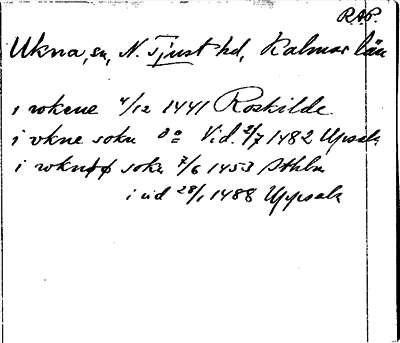 RAP.
Ukna, sn, N. Tjust hd, Kalmar län
i wkene 4/12 1441 Roskilde
i vkne sokn Vid. 2/7 1482 Upsala
i wknøø sokn 7/6 1453 Sthlm
i ud 28/1 1488 Uppsala